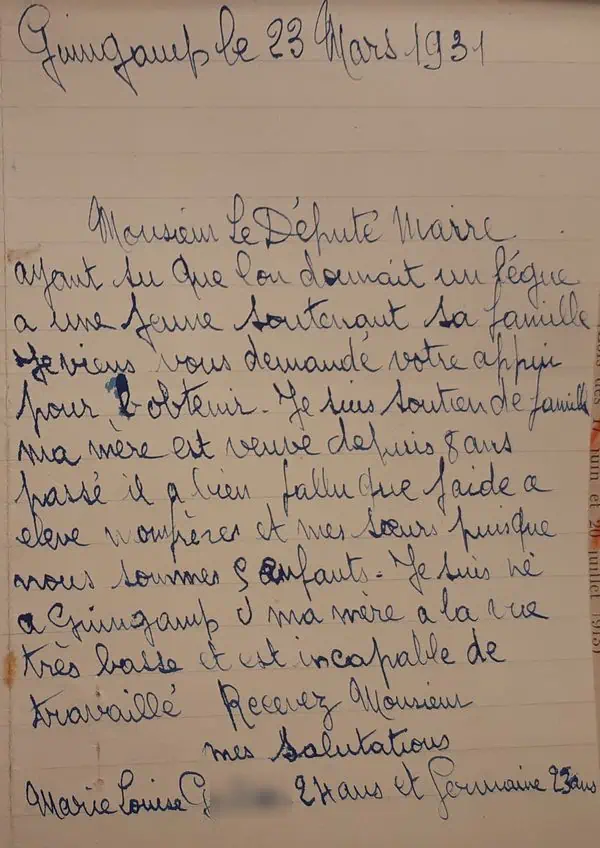 Guingamp le 23 Mars 1931
Monsieur Le Député Marre
ayant su que lon donnait un légue
a une jeune soutenant sa famille
Je viens vous demandé votre appui
pour l'obtenir. Je suis soutien de famille
ma mère est veuve depuis 8 ans
passé il a bien fallu que j'aide a
eleve mes frères et mes sœurs puisque
nous sommes 9 enfants. Je suis né
a Guingamp ma mère a la vue
très basse et est incapable de
travaillé Recevez Monsieur
mes salutations
Marie Louise G 24 ans et Germaine 23 ans
juin et 20 juillet 1913)